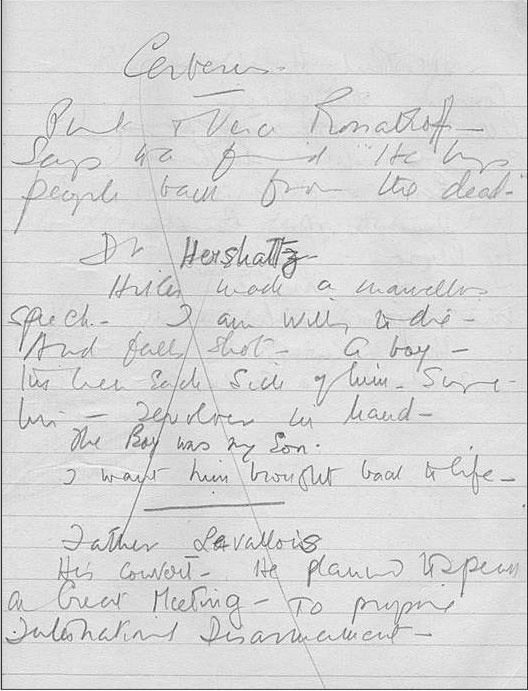 Cerberus.
+ Vera Rossakoff –
Says to a friend "He brings
people back from the dead"
Dr Hershaltz
Hitler made a marvellous
speech – I am willing to die –
And falls shot – A boy –
men each side of him – Seize
him – revolver in hand –
The Boy was my Son.
I want him brought back to life –
Father Lavallois
His convert – He planned to speak
a Great Meeting – To propose
International Disarmament –